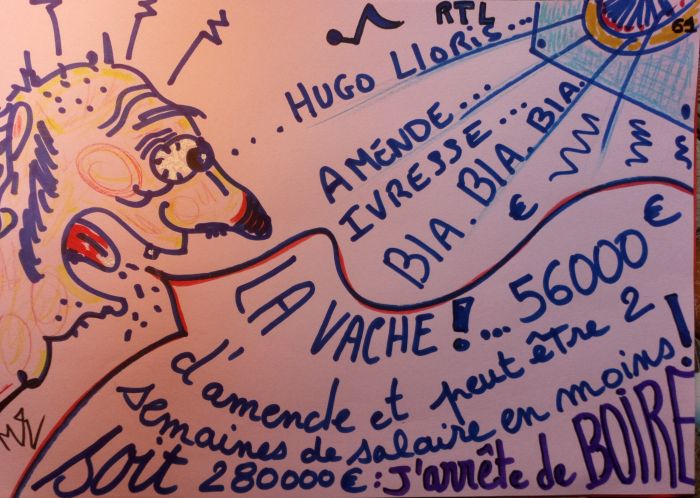 RTL
61
HUGO LLORIS...
AMENDE...
IVRESSE...
BLA. BLA. BLA.
€ €
LA VACHE ! ... 56000
d'amende et peut être 2
semaines de salaire en moins !
soit 280000 € : J'arrête de BOIRE